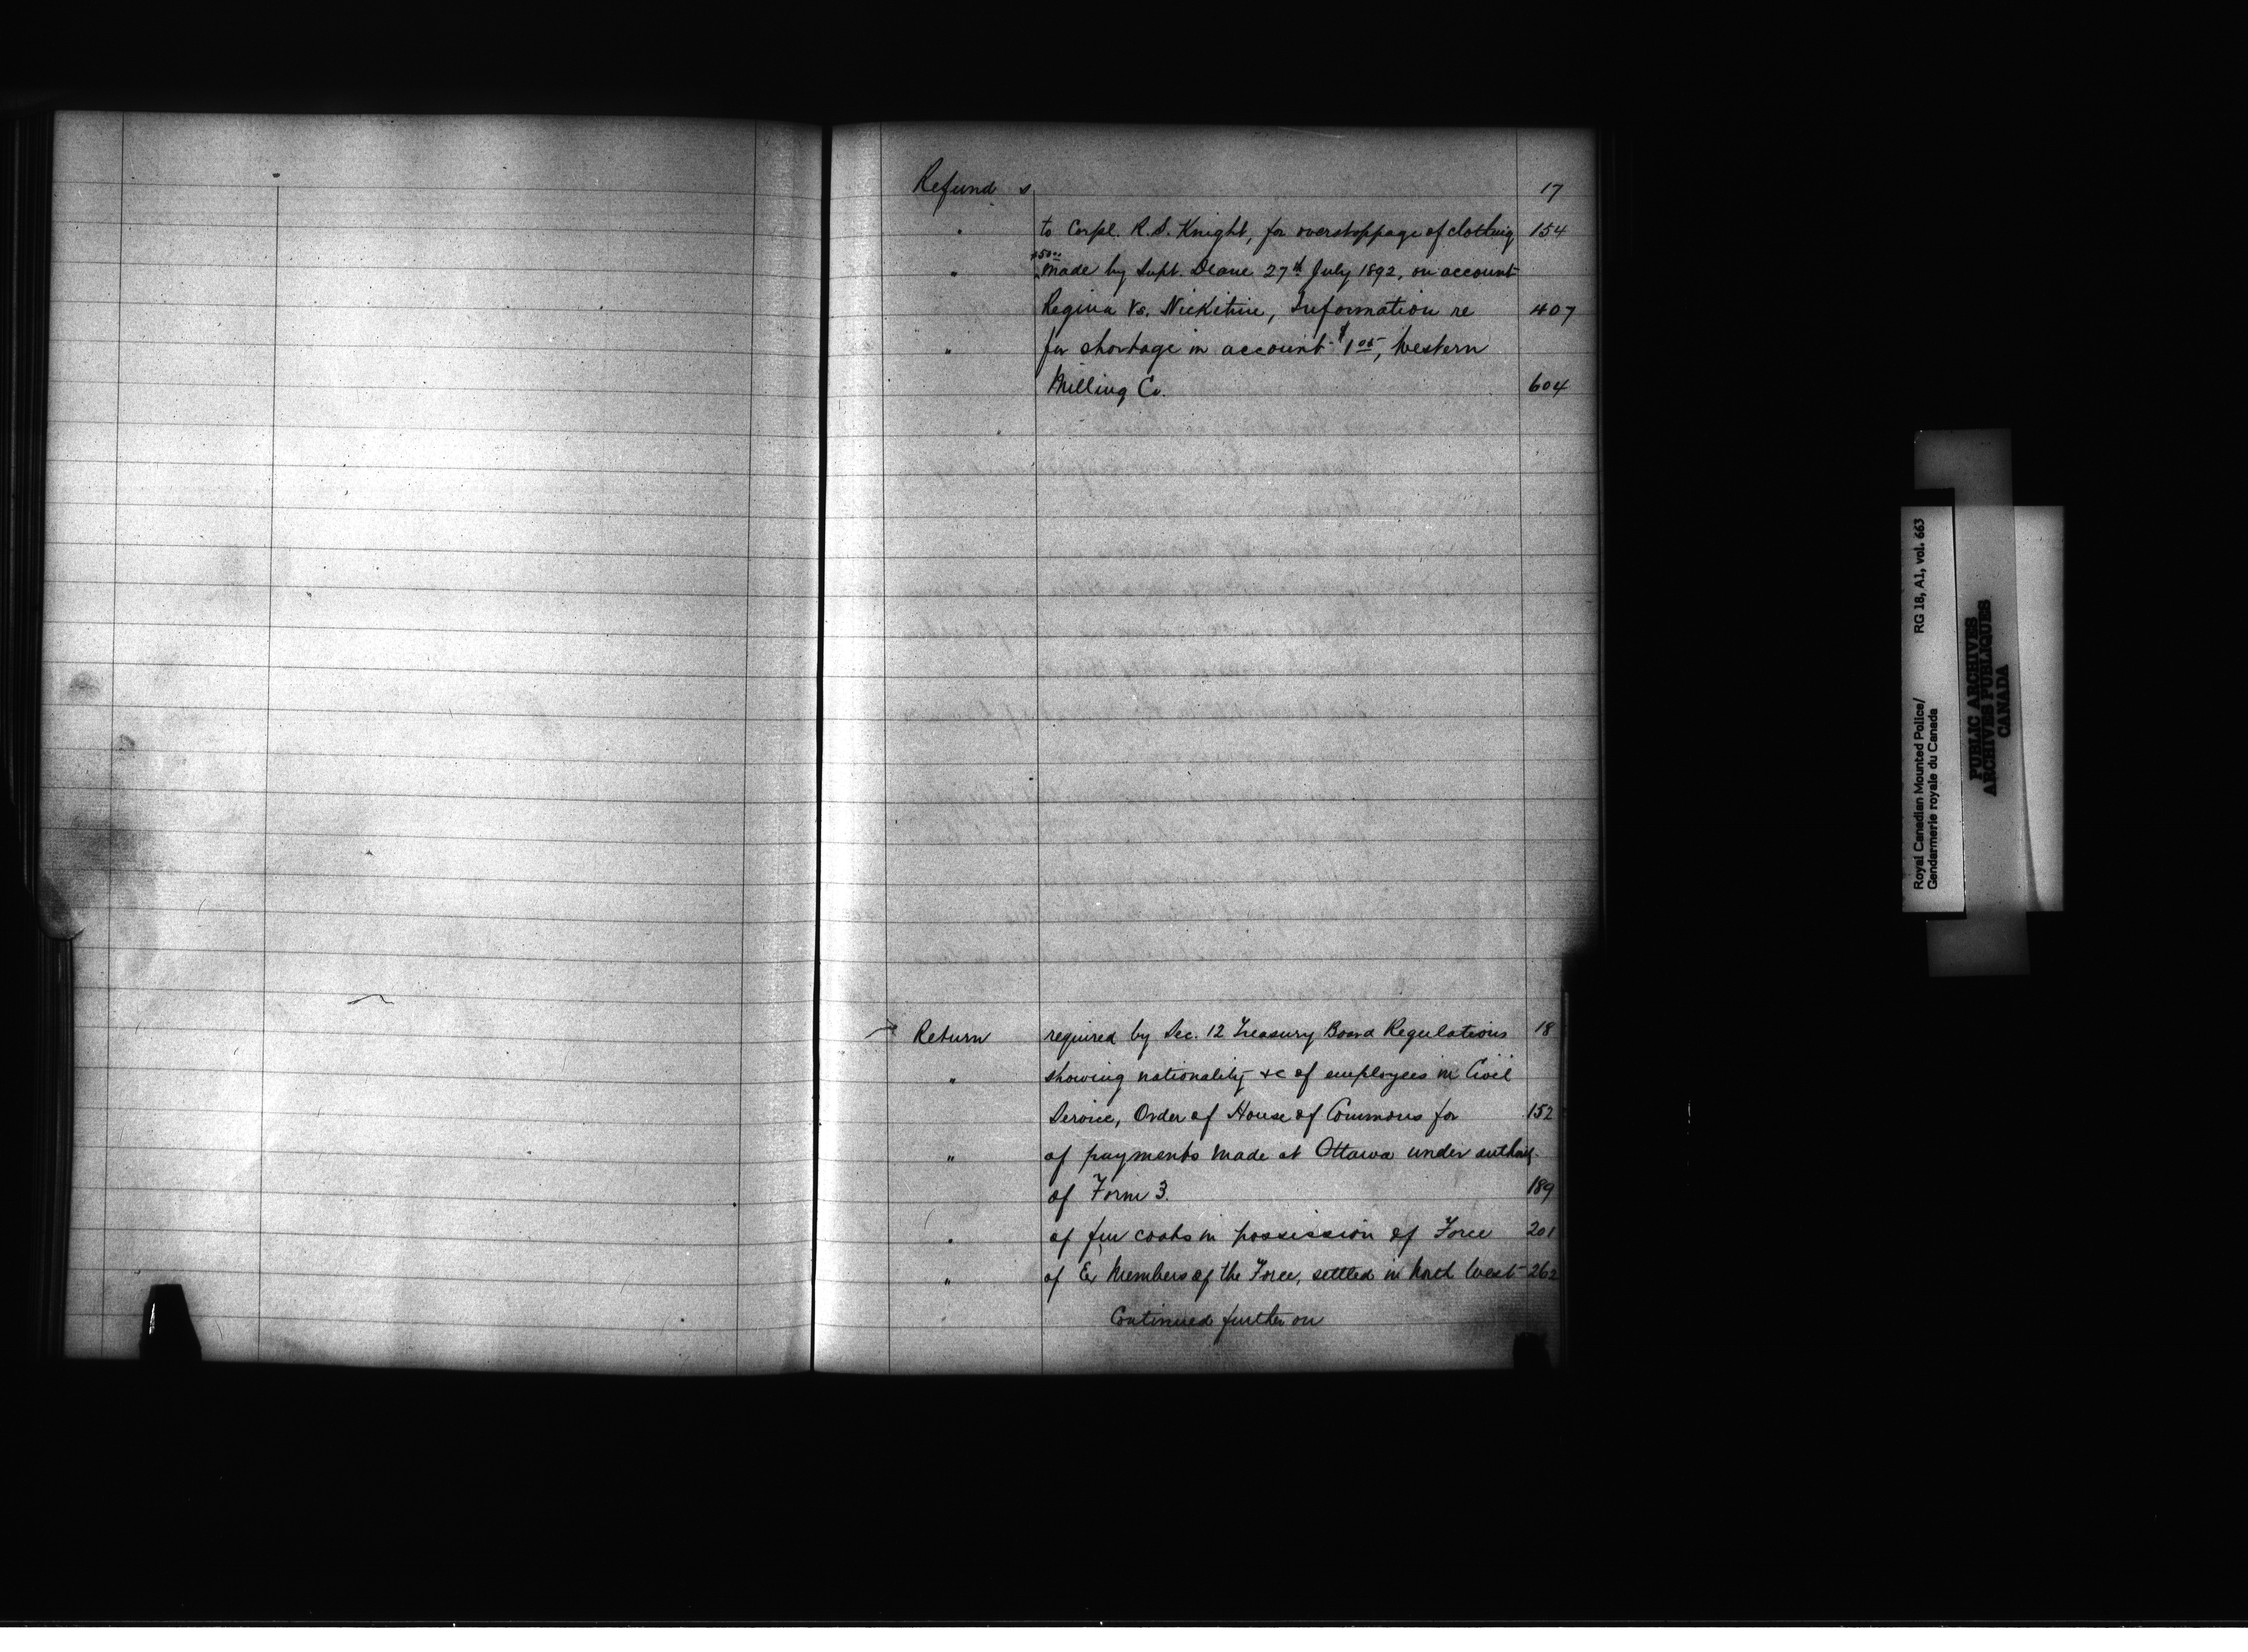 Refund s 17
" to Corpl. R.S. Knight, for overstoppage of clothing 154
" $50.00 made by Supt. Deane 27th July 1892, on account
Regina Vs. Nickitine, Information re 407
" for shortage in account $1.05, Western
Milling Co. 604
Return required by Sec. 12 Treasury Board Regulations 18
" showing nationality &c of employees in Civil
Service, Order of House of Commons for 152
" of payments made at Ottawa under
of Form 3. 189
" of fur coats in possession of Force 201
" of Ex Members of the Force, settled in North West 262
Continued further on
Royal Canadian Mounted Police/ RG 18, A1, vol. 663
Gendarmerie royale du Canada
PUBLIC ARCHIVES
ARCHIVES PUBLIQUES
CANADA